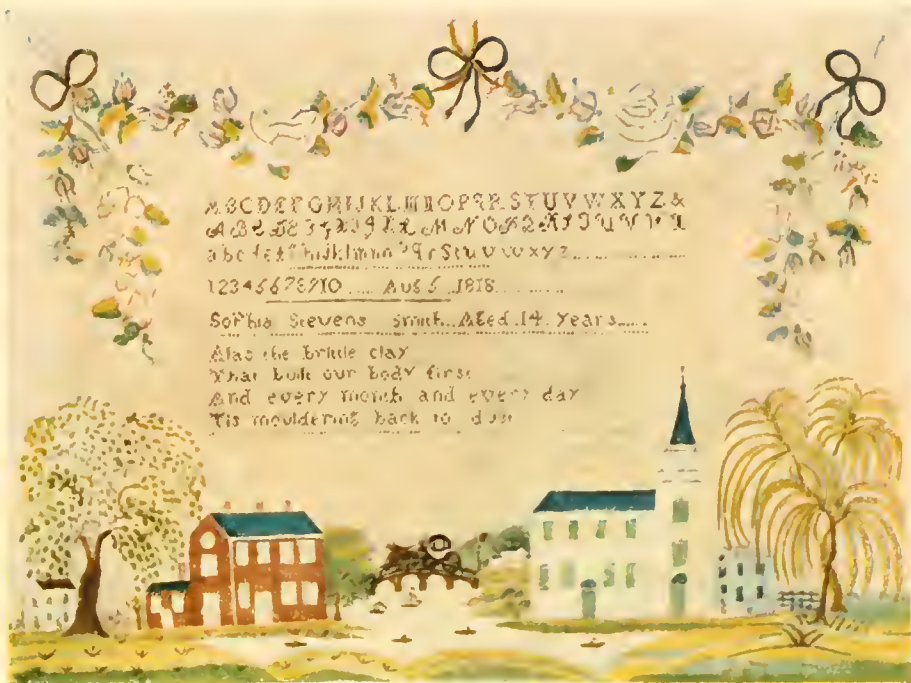 ABCDEFGHIJKLMNOPQRSTUVWXYZ&
abcdefghijklmnopqrstuvwxyz
12345678910 Aug 5 1818
Sophia Stevens Smith Aged 14 Years
Alas the brittle clay
That built our body first
And every month and every day
Tis mouldering back to dust